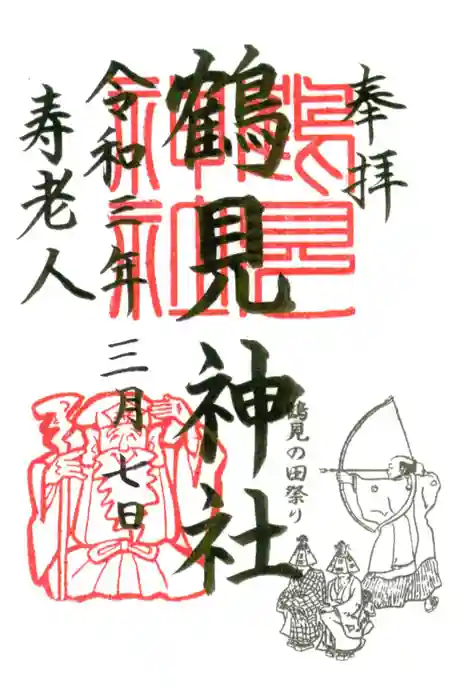 奉拝
鶴見神社
鶴見神社
令和三年三月七日
寿老人
鶴見の田祭り